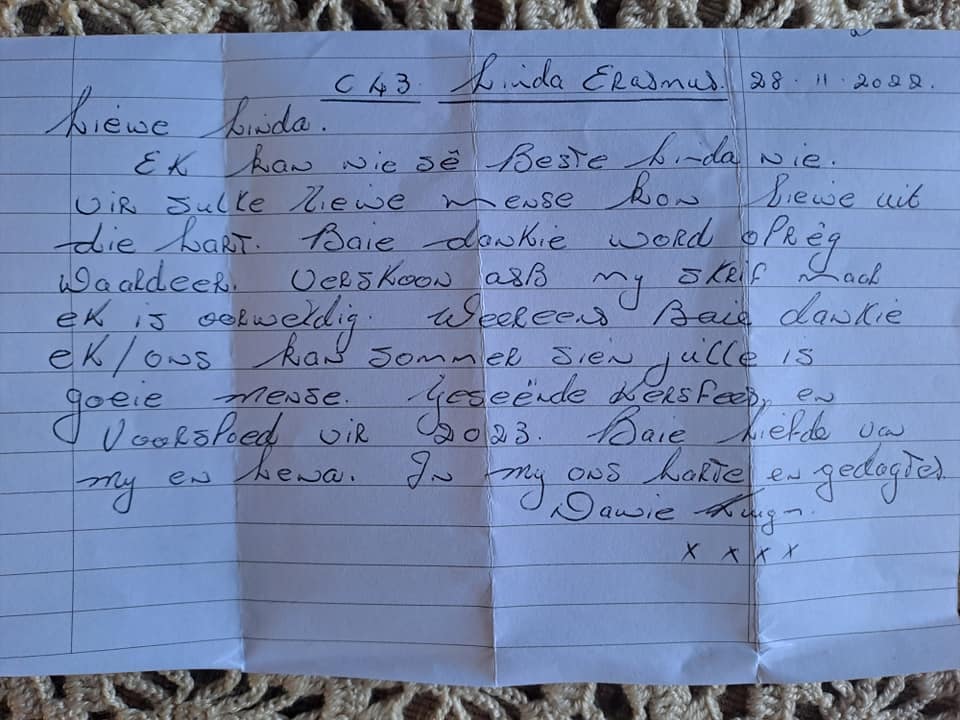 C 43. Linda Erasmus. 28.11.2022.
Liewe Linda.
EK kan nie sê Beste Linda nie.
vir sulke liewe mense kom liewe uit
die hart. Baie dankie word opreg
Waardeer. Verskoon asb my skrif maar
ek is oorweldig. Weereens Baie dankie
ek/ons kan sommer sien julle is
goeie mense. Geseënde Kersfees, en
Voorspoed vir 2023. Baie Liefde van
my en Lena. In my ons harte en gedagtes.
Dawie
x x x x